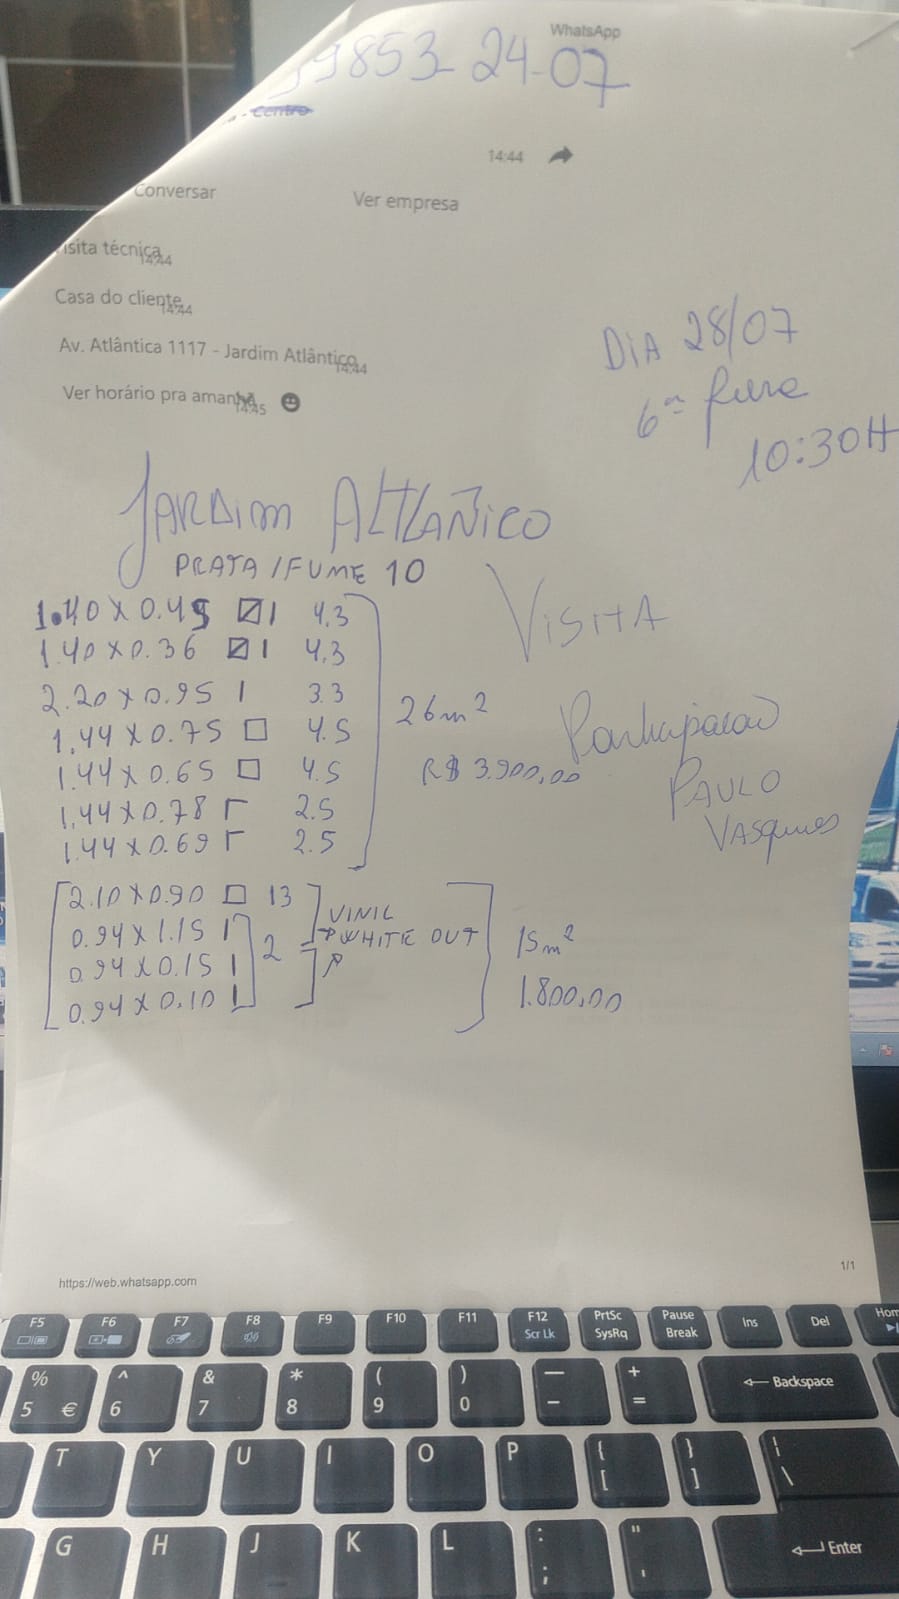 WhatsApp
99853-24-07
- Centro
14:44
Conversar
Ver empresa
isita técnica
14:44
Casa do cliente
14:44
Av. Atlântica 1117 - Jardim Atlântico
14:44
Ver horário pra amanhã
14:45
DIA 28/07
6ª feira
10:30H
JARDIM ATLÂNTICO
PRATA/FUME 10
VISITA
1.40 X 0.45 4.3
1.40 X 0.36 4.3
2.20 X 0.95 3.3
1.44 X 0.75 4.5
1.44 X 0.65 4.5
1.44 X 0.78 2.5
1.44 X 0.69 2.5
26m²
R$ 3.900,00
Participação
PAULO
VASques
2.10 X 0.90 13
0.94 X 1.15
0.94 X 0.15
0.94 X 0.10
2
VINIL
WHITE OUT
15m²
1.800,00
https://web.whatsapp.com
1/1
F5 F6 F7 F8 F9 F10 F11 F12 PrtSc Pause Ins Del Hom
Scr Lk SysRq Break
% ^ & * ( ) — + Backspace
5 € 6 7 8 9 0 - =
T Y U I O P { } |
[ ] \
G H J K L : " Enter
; '